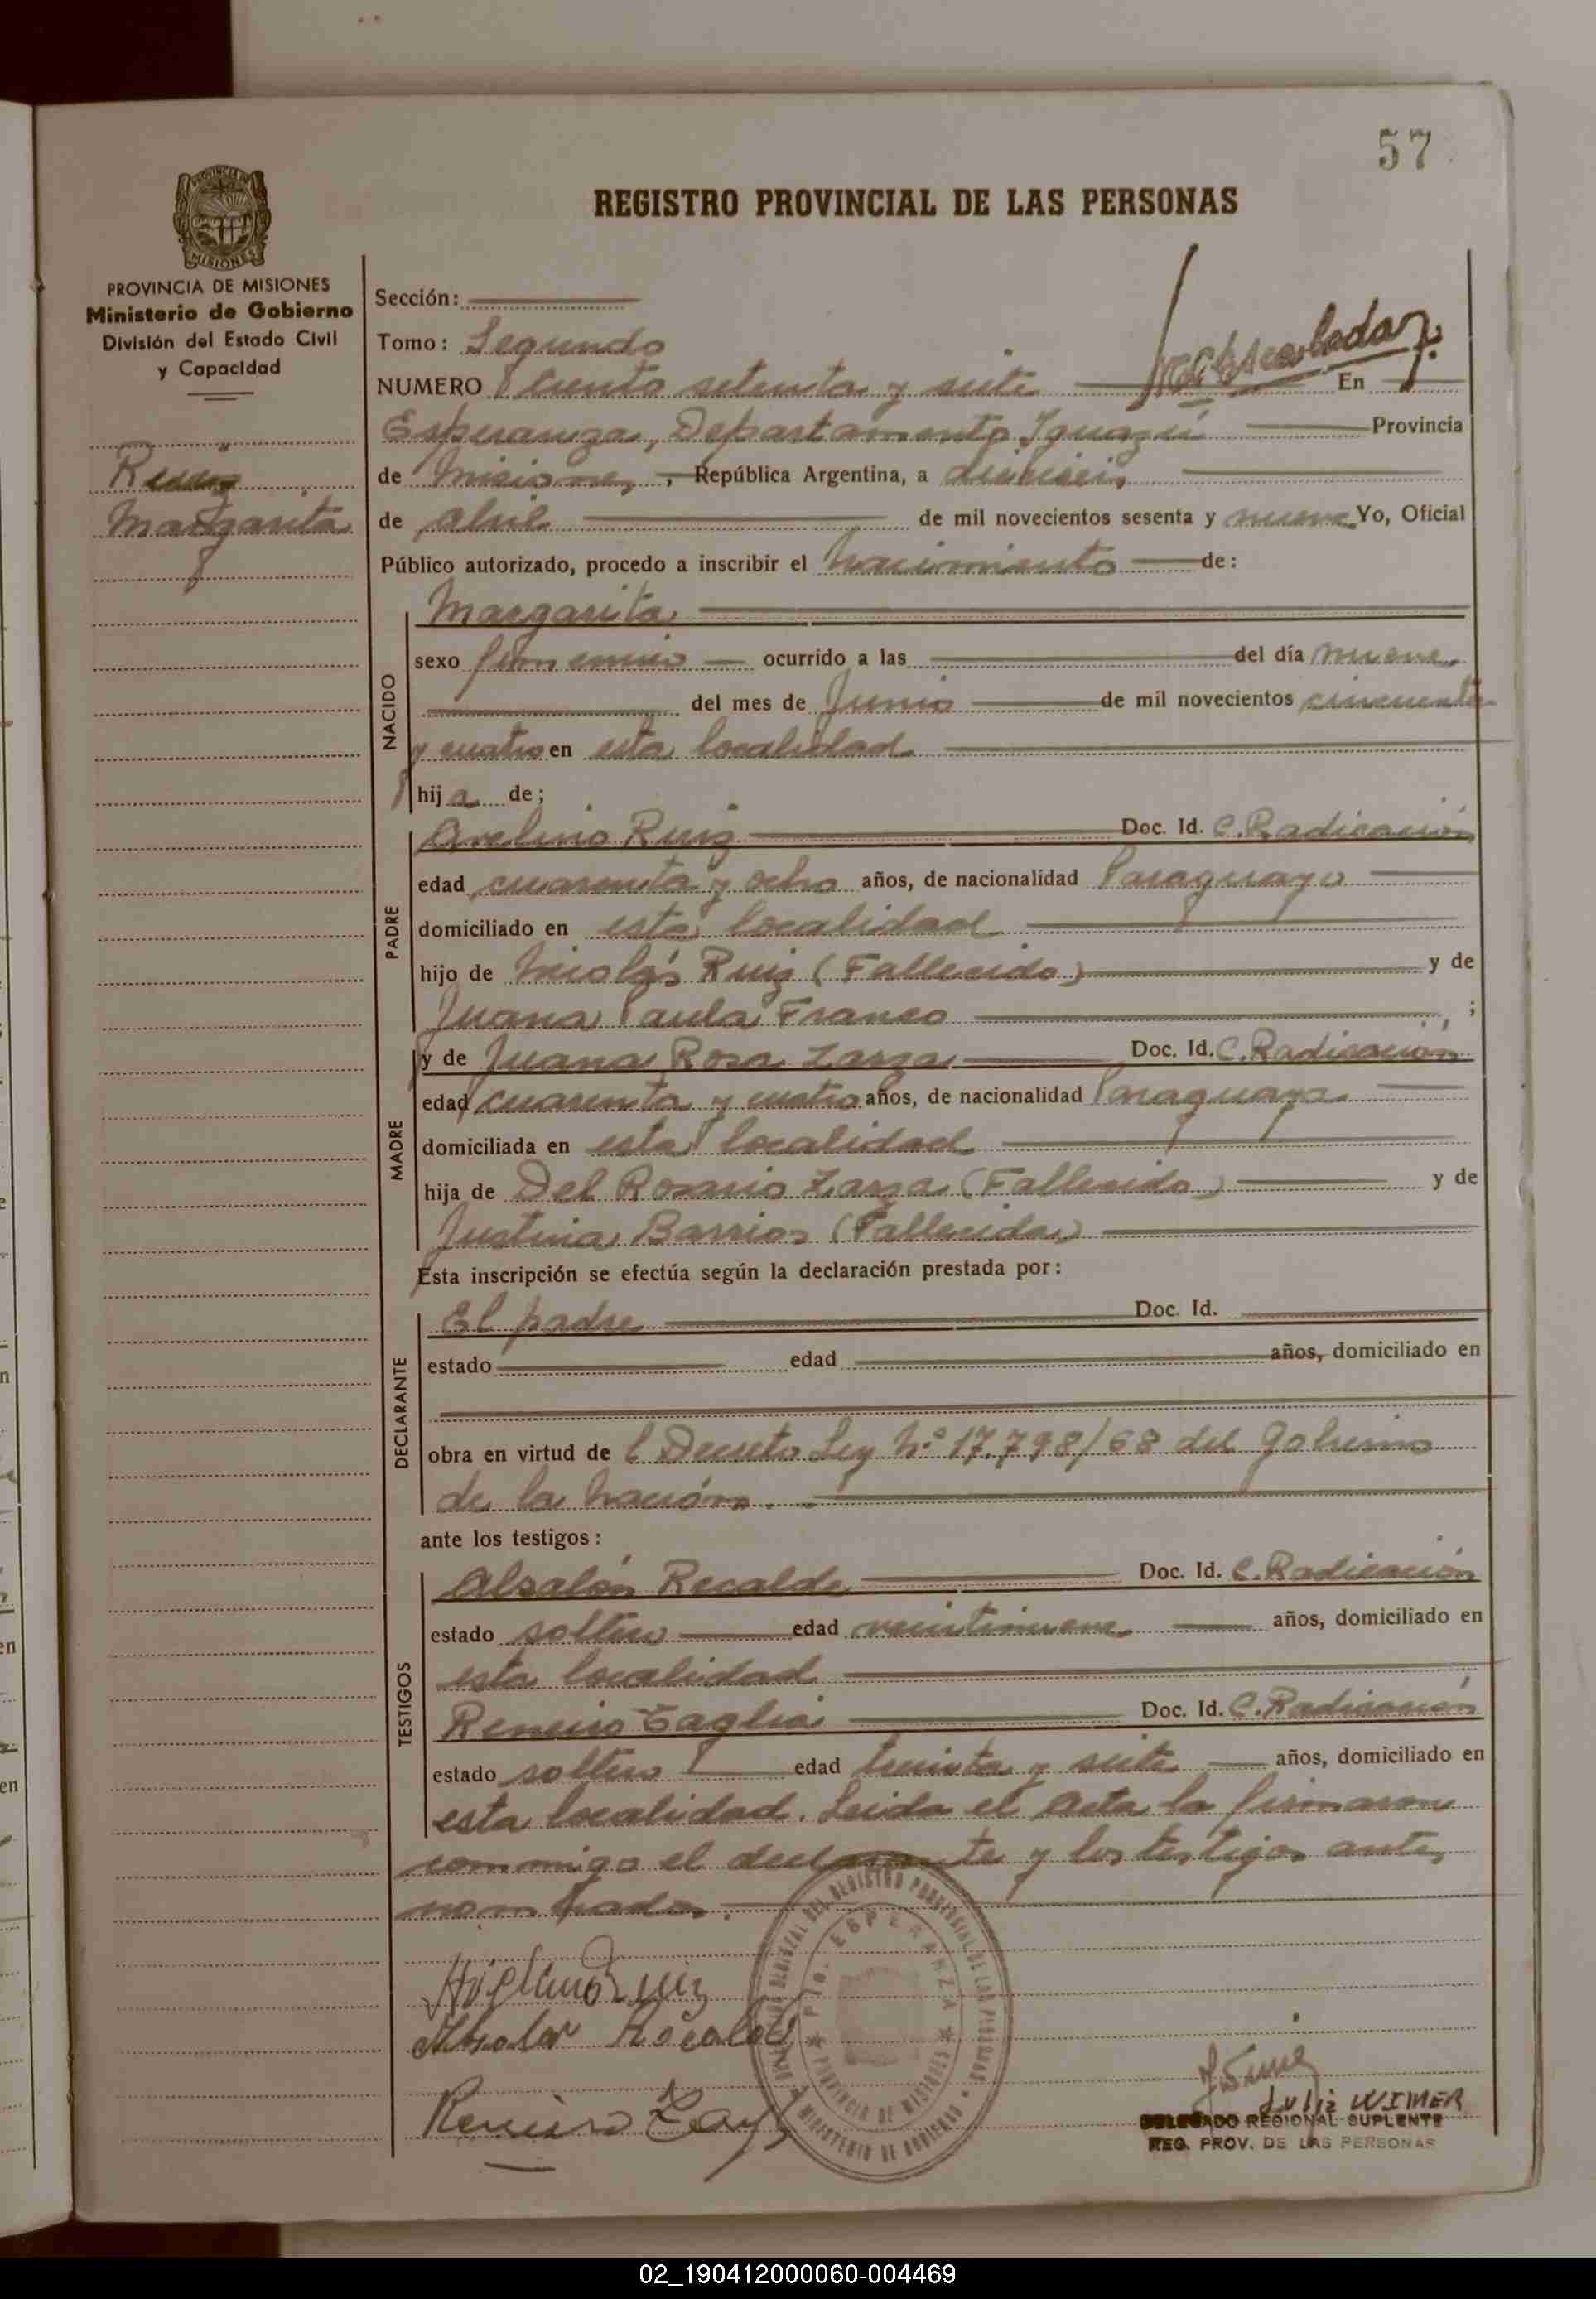 57
REGISTRO PROVINCIAL DE LAS PERSONAS
PROVINCIA DE MISIONES
Ministerio de Gobierno
División del Estado Civil
y Capacidad
Ruiz
Margarita
Sección:
Tomo: Segundo
NUMERO Ciento setenta y siete En
Esperanza, Departamento Iguazú Provincia
de Misiones, República Argentina, a dieciseis
de abril de mil novecientos sesenta y nueve Yo, Oficial
Público autorizado, procedo a inscribir el nacimiento de:
NACIDO
Margarita
sexo femenino ocurrido a las del día nueve
del mes de Junio de mil novecientos cincuenta
y cuatro en esta localidad
hija de;
PADRE
Avelino Ruiz Doc. Id. C. Radicación
edad cuarenta y ocho años, de nacionalidad Paraguayo
domiciliado en esta localidad
hijo de Nicolás Ruiz (Fallecido) y de
Juana Paula Franco ;
MADRE
y de Juana Rosa Zarza Doc. Id. C. Radicación
edad cuarenta y cuatro años, de nacionalidad Paraguaya
domiciliada en esta localidad
hija de Del Rosario Zarza (Fallecido) y de
Justina Barrios (Fallecida)
Esta inscripción se efectúa según la declaración prestada por:
DECLARANTE
El padre Doc. Id.
estado edad años, domiciliado en
obra en virtud de l Decreto Ley Nº 17.798/68 del Gobierno
de la Nación.
ante los testigos:
TESTIGOS
Absalón Recalde Doc. Id. C. Radicación
estado soltero edad veintinueve años, domiciliado en
esta localidad
Renerio Doc. Id. C. Radicación
estado soltero edad treinta y siete años, domiciliado en
esta localidad. Leida el acta la firmaron
conmigo el declarante y los testigos antes
nombrados.
Ruiz
REGISTRO PROVINCIAL DE LAS PERSONAS
PTO. ESPERANZA
PROVINCIA DE MISIONES
MINISTERIO DE GOBIERNO
WIMER
DELEGADO REGIONAL SUPLENTE
REG. PROV. DE LAS PERSONAS
02_190412000060-004469